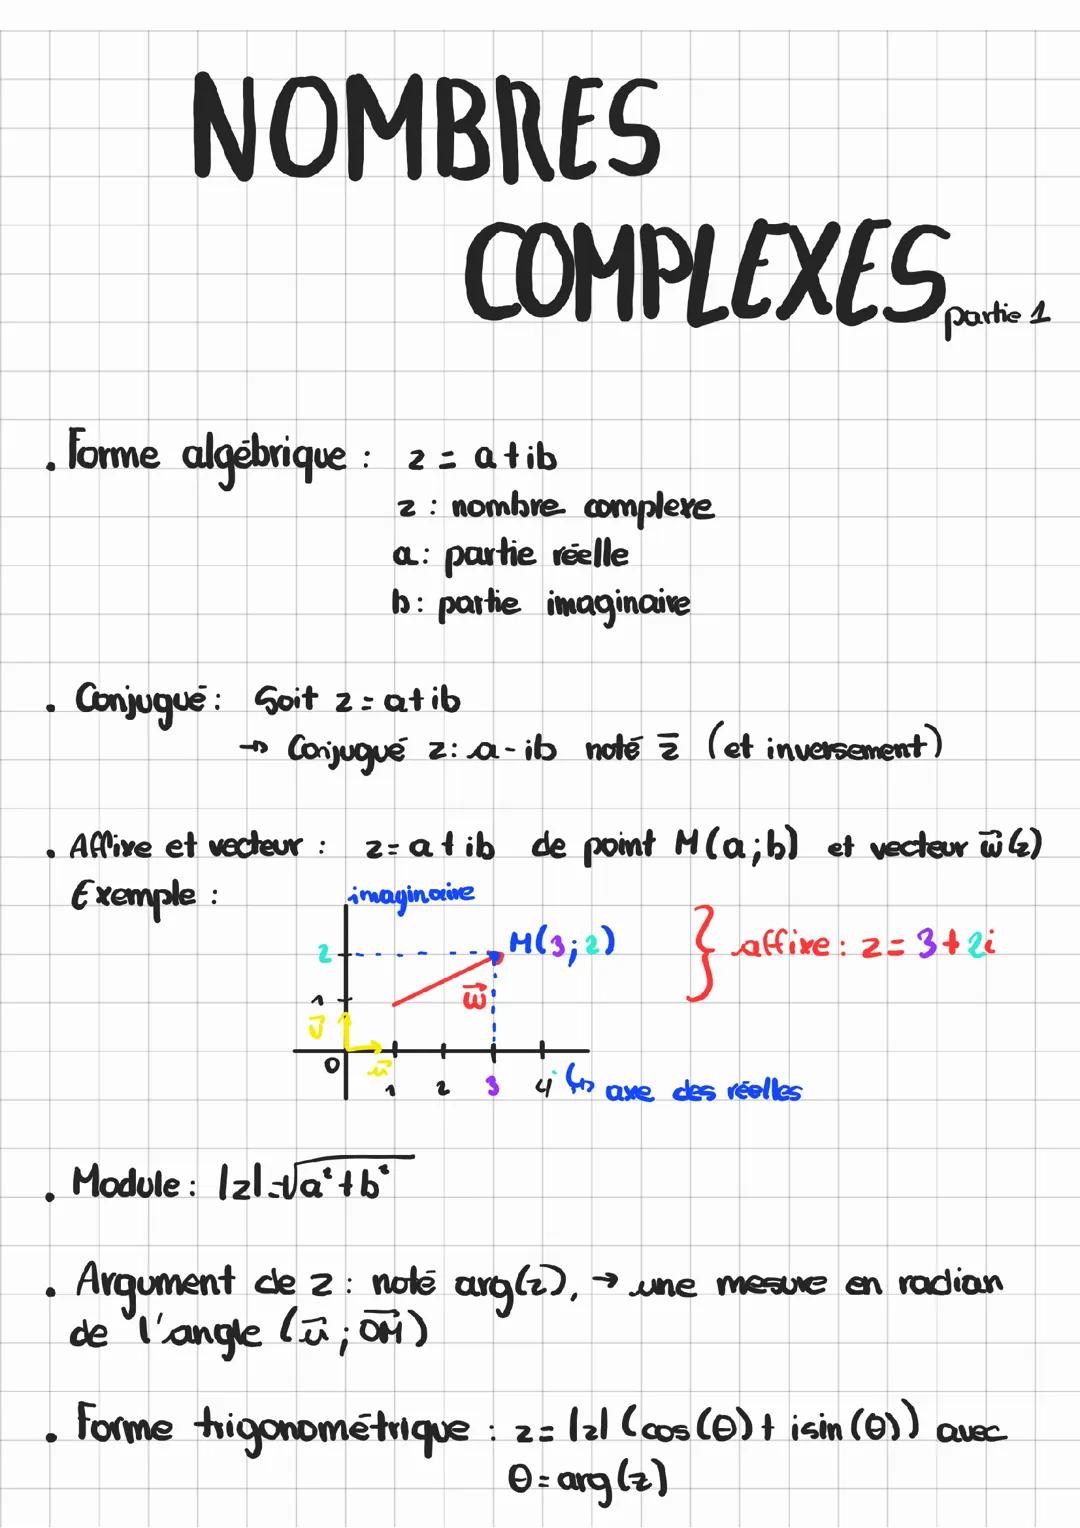 NOMBRES
COMPLEXES partie 1
. Forme algébrique : z = a+ib
z : nombre complexe
a : partie réelle
b : partie imaginaire
. Conjugué : Soit z = a+ib
→ Conjugué z : a-ib noté z̅ (et inversement)
. Affixe et vecteur : z = a+ib de point M(a;b) et vecteur w⃗(z)
Exemple :
imaginaire
2
M(3;2)
} affixe : z = 3+2i
w⃗
1
v⃗
0
u⃗
1 2 3 4
↳ axe des réelles
. Module : |z| = √a²+b²
. Argument de z : noté arg(z), → une mesure en radian
de l'angle (u⃗ ; OM⃗)
. Forme trigonométrique : z = |z| (cos(θ) + isin(θ)) avec
θ = arg(z)